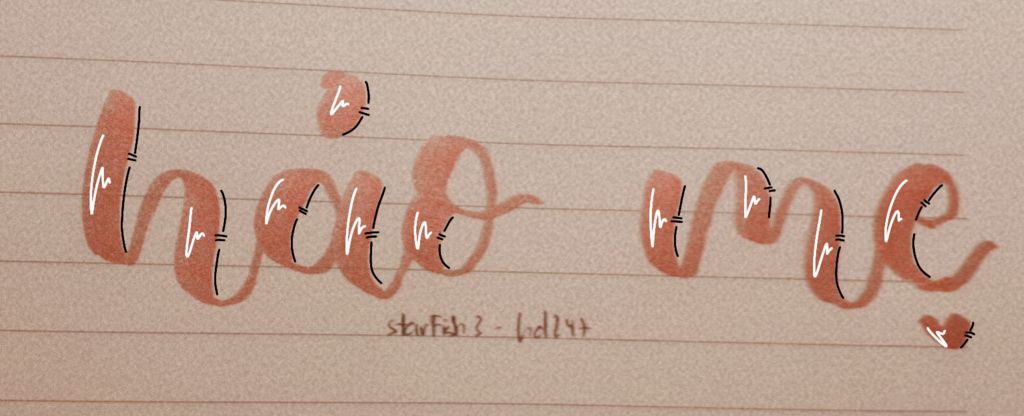 hảo mẹ
starFish3 - hd247